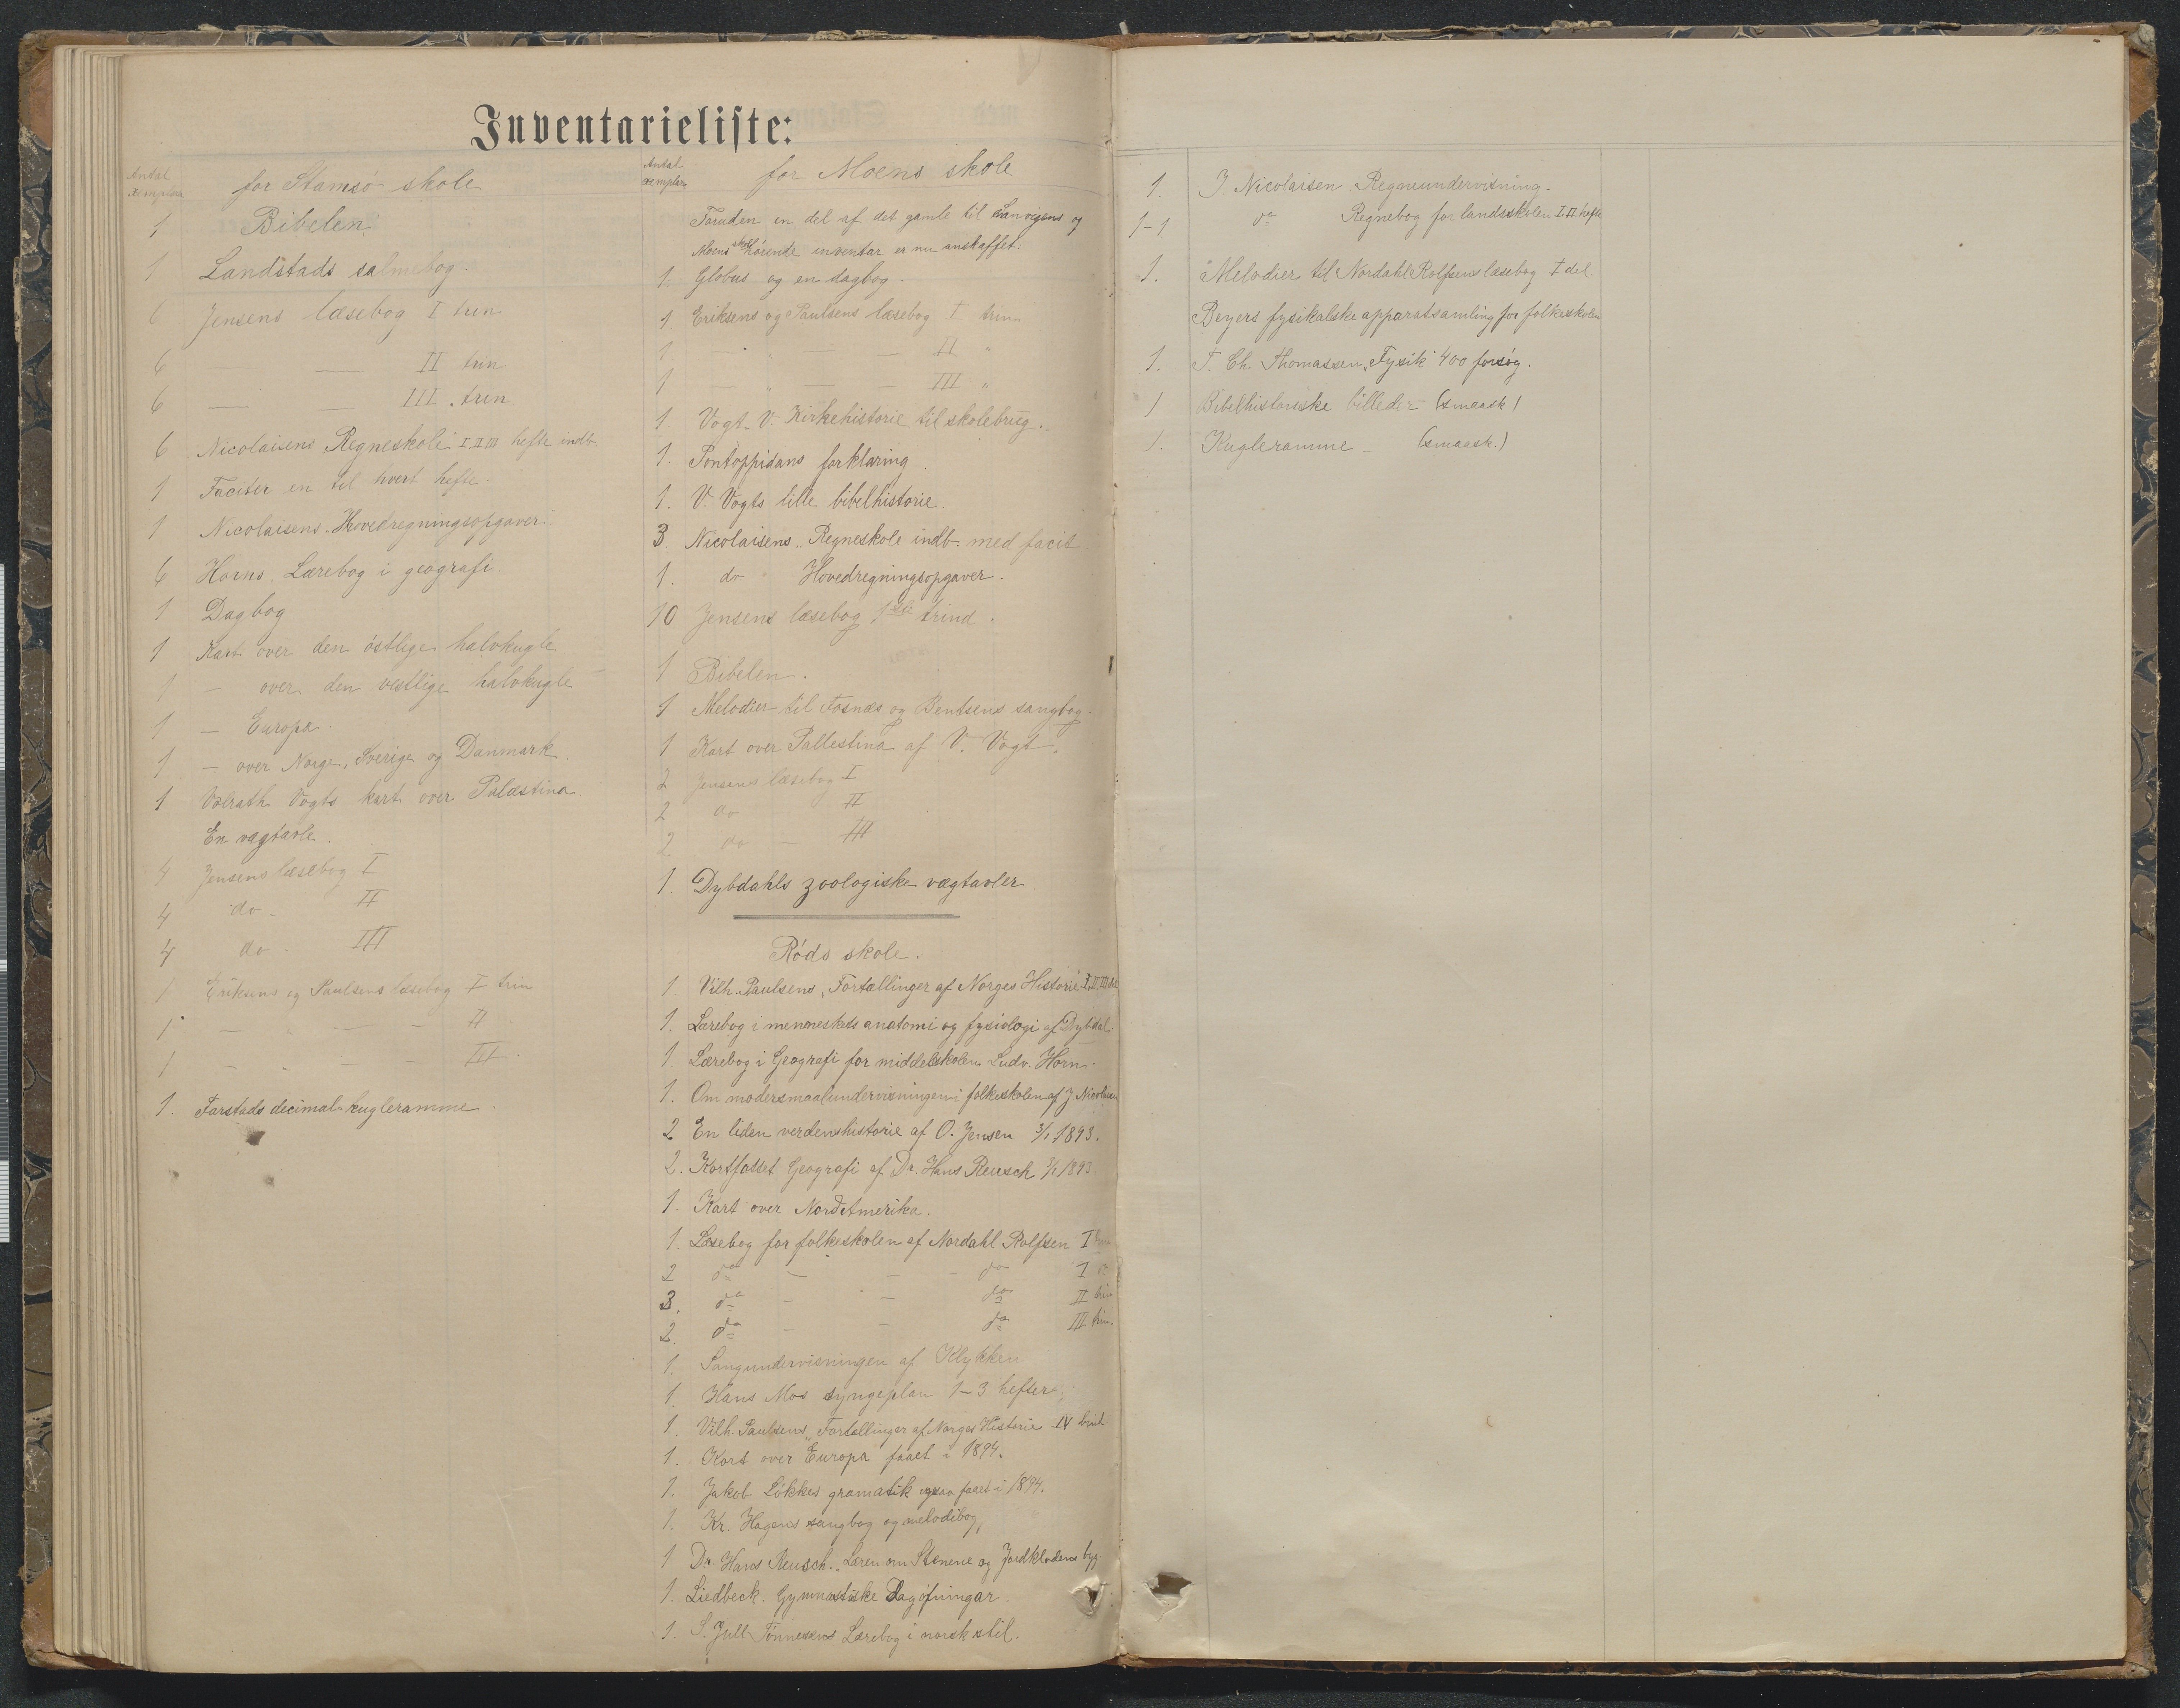 Inventarieliste:
Antal
exemplar
for Stamsø skole
1 Bibelen
1 Landstads salmebog.
6 Jensens læsebog I trin
6 — — II trin
6 — — III. trin
6 Nicolaisens Regneskole I.II.III hefte indb.
1 Faciter en til hvert hefte.
1 Nicolaisens Hovedregningsopgaver.
6 Horns Lærebog i geografi.
1 Dagbog
1 Kart over den östlige halvkugle
1 — over den vestlige halvkugle
1 — Europa.
1 — over Norge, Sverige og Danmark.
1 Volrath Vogts kart over Palæstina
En vægtavle.
4 Jensens læsebog I
4 do - II
4 do - III
1 Eriksens og Paulsens læsebog I trin
1 — - — - II
1 — - — - III.
1. Farstads decimal-kugleramme.
Antal
exemplar
for Moens skole
Foruden en del af det gamle til Sanvigens og
Moens skole hörende inventar er nu anskaffet:
1. Globus og en dagbog.
1 Eriksens og Paulsens læsebog I trin
1. - " — — II "
1 — " — — III "
1 Vogt V. Kirkehistorie til skolebrug.
1. Pontoppidans forklaring.
1. V. Vogts lille bibelhistorie.
3. Nicolaisens „Regneskole indb. med facit
1. do " Hovedregningsopgaver.
10 Jensens læsebog 1ste trind.
1 Bibelen.
1 Melodier til Fosnæs og Bendsens sangbog.
1 Kart over Pallestina af V. Vogt.
2 Jensens læsebog I
2 do II
2 do — III
1. Dybdahls zoologiske vægtavler
Röds skole.
1. Vilh. Paulsens, Fortællinger af Norges Historie I, II, III
1. Lærebog i menneskets anatomi og fysiologi af Dybdal.
1. Lærebog i Geografi for middelskolen Ludv. Horn.
1. Om modersmaalundervisningen i folkeskolen af J. Nicolaisen
2 En liden verdenshistorie af O. Jensen 3/1 1893.
2. Kortfattet Geografi af Dr. Hans Reusch 3/1 1893
1. Kart over NordAmerika.
1. Læsebog for folkeskolen af Nordahl Rolfsen I
2 do — — - do I
3. do - - do II trin
2. do - - do III trin.
1. Sangundervisningen af Klykken
1. Hans Mos syngeplan 1-3 hefter
1. Vilh. Paulsens, Fortællinger af Norges Historie IV bind
1. Kart over Europa faaet i 1894.
1. Jakob Lökkes gramatik ogsaa faaet i 1894.
1. Kr. Hagens sangbog og melodibog,
1 Dr. Hans Reusch. Læren om Stenene og Jordklodens byg
1. Liedbeck. Gymnastiske Dagöfningar.
1. S. Jull Tönnesens Lærebog i norsk stil.
1. J. Nicolaisen. Regneundervisning.
1-1 do Regnebog for landsskolen I.II. hefte
1. Melodier til Nordahl Rolfsens læsebog I del
Beyers fysikalske apparatsamling for folkeskolen
1. T. Ch. Thomassen „Fysik" 400 forsög.
1 Bibelhistoriske billeder - (smaask)
1. Kugleramme - (smaask.)